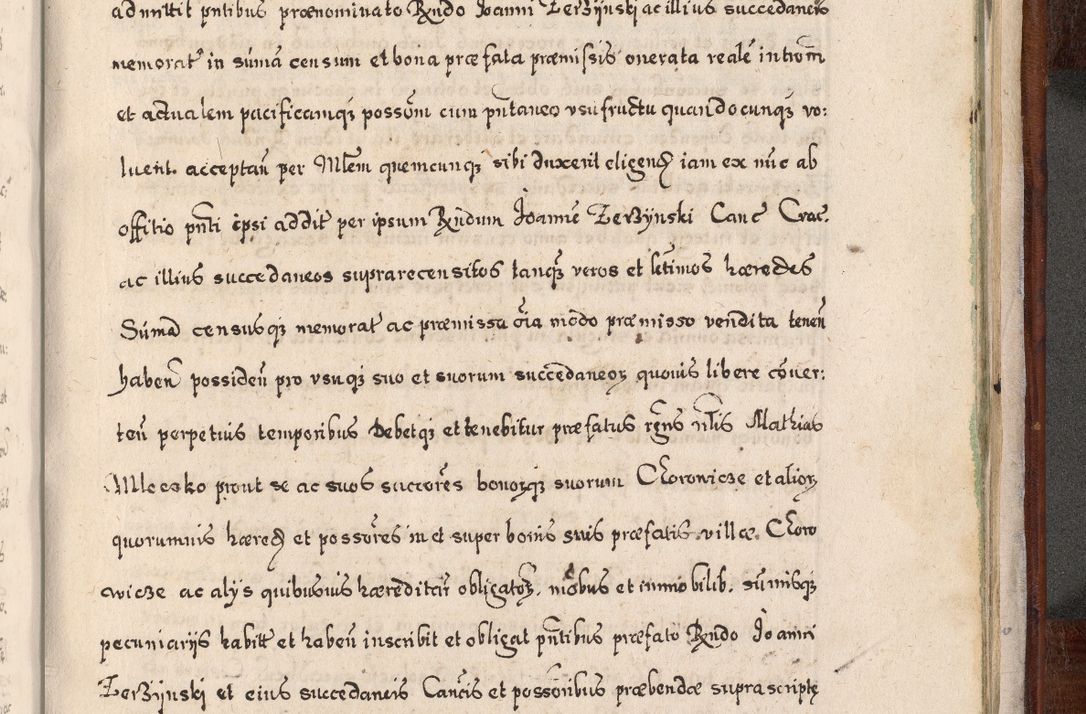 admittit pntibus prænominato Rndo Joanni Zerzynski ac illius succedaneis
memorat in sumã censum et bona præfata præmissis onerata reale introm
et actualem pacificamqz possom cum pntaneo vsufructu quandocunqz vo:
luerit. acceptan per Mlem quemcunqz sibi duxerit eligend iam ex nuc ab
offitio pnti ipsi addit per ipsum Rndum Joanne Zerzynski Canc Crac.
ac illius succedaneos suprarecensitos tanqz veros et letimos hæredes
Sumã censusqz memorat ac præmissa oia modo præmisso vendita tenen
haben possiden pro vsuqz suo et suorum succedaneoz quovis libere cover:
ten perpetuis temporibus Debetqz et tenebitur præfatus rgns nlis Mathias
Mleczko prout se ac suos suctores bonozqz suorum Chorowicze et alioz
quorumuis hæred et possores in et super bonis suis præfatis villæ. Choro
wicze ac alys quibusuis hæreditar obligatoz. mobus et immobilib. sumisqz
pecuniarijs habit et haben inscribit et obligat pntibus præfato Rndo Joanni
Zerzynski et eius succedaneis Cancis et possoribus præbendæ suprascriptę